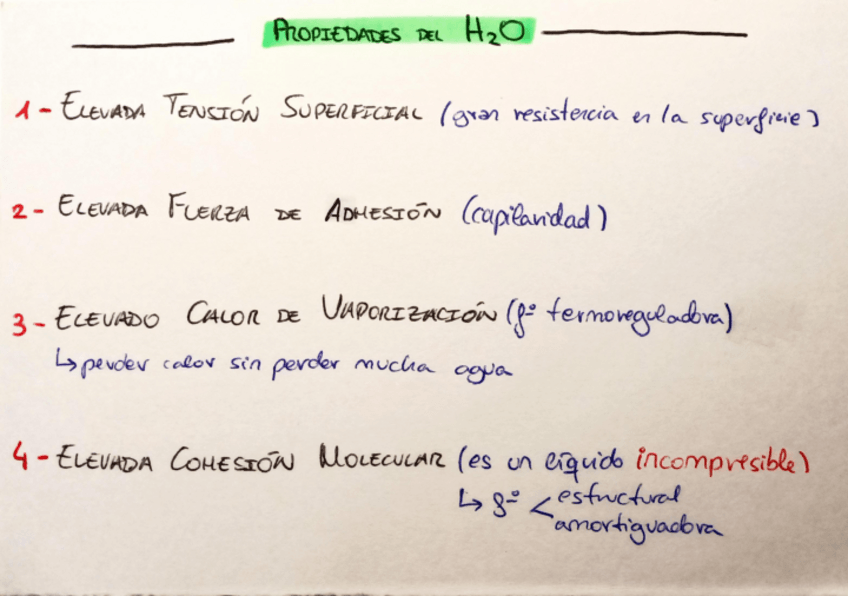 PROPIEDADES DEL H₂O
1- ELEVADA TENSIÓN SUPERFICIAL (gran resistencia en la superficie)
2- ELEVADA FUERZA DE ADHESIÓN (capilaridad)
3- ELEVADO CALOR DE VAPORIZACIÓN (fº termoreguladora)
↳ perder calor sin perder mucha agua
4- ELEVADA COHESIÓN MOLECULAR (es un líquido incompresible)
↳ fº < estructural
amortiguadora